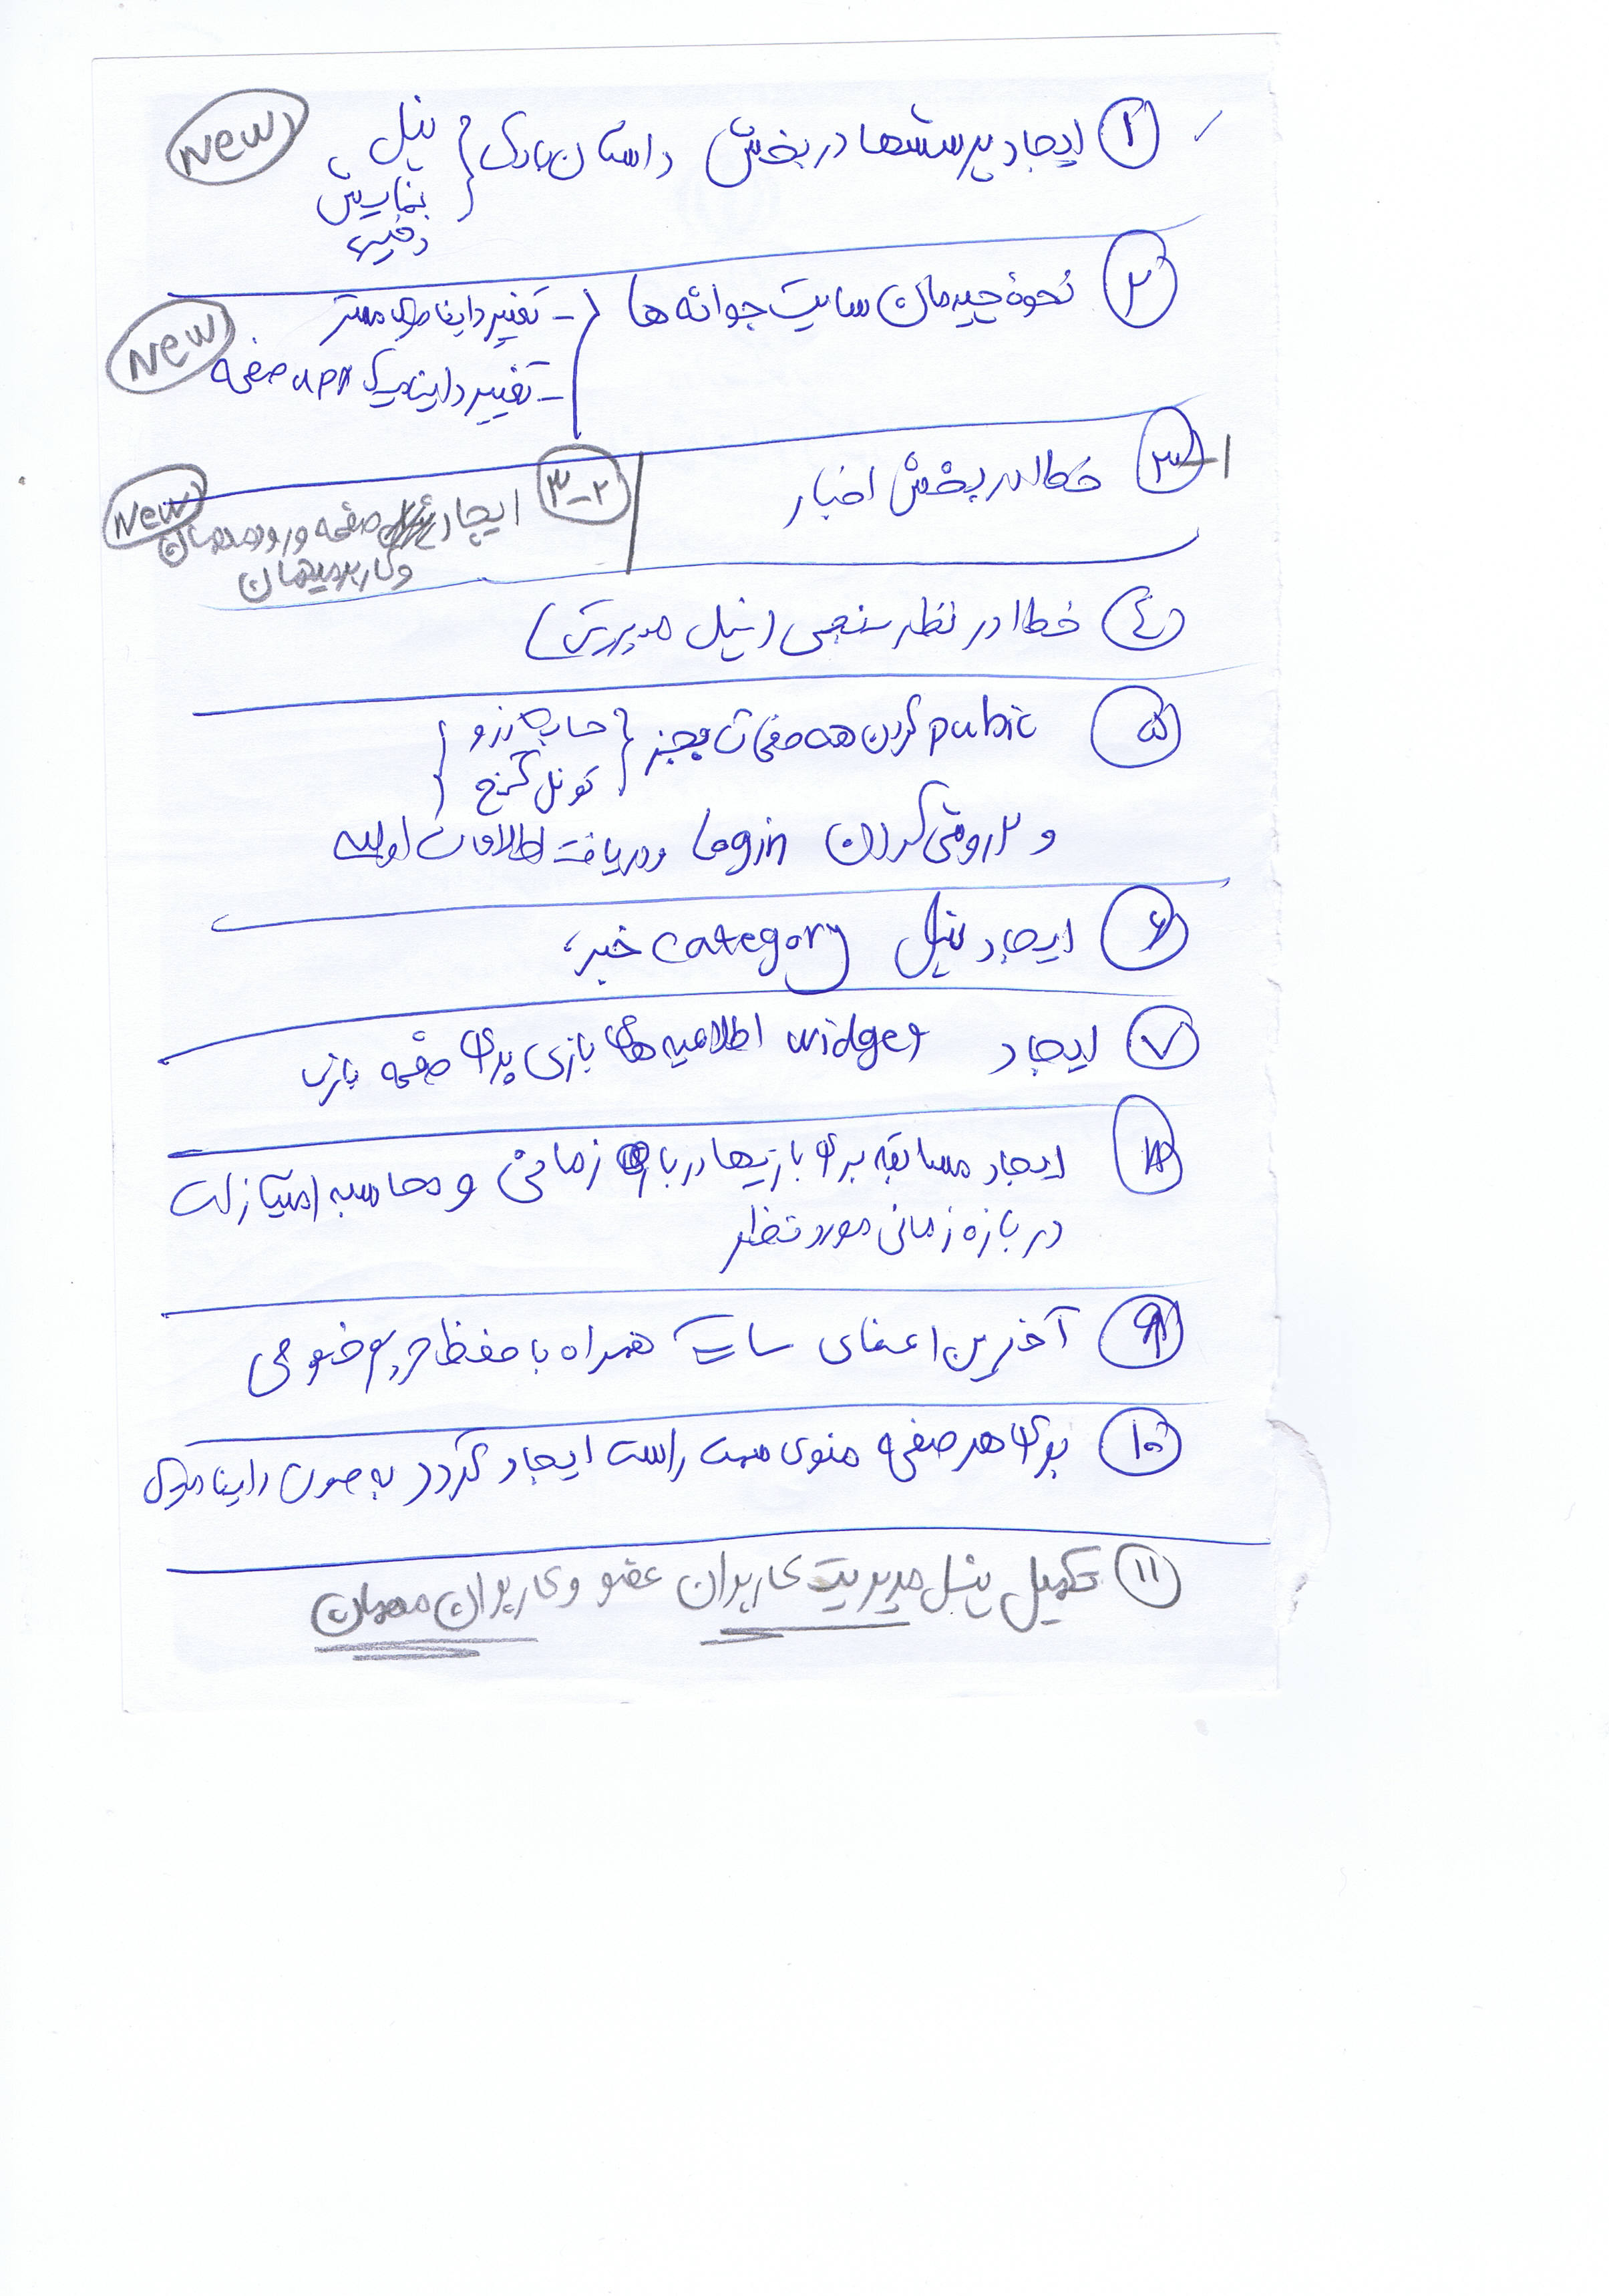 ① ایجاد پرسشها در بخش داستان بازی { پنل
نمایش
New
② نحوه چیدمان سایت جوانه ها { - تغییر داینامیک مستر
- تغییر داینامیک صفحه
New
۳-۱ خطا در بخش اخبار
۳-۲ ایجاد صفحه ورود مهمان
و کاربر میهمان
New
④ خطا در نظر سنجی (پنل مدیریت)
⑤ pubic کردن همه صفحات بجز { چاه آرزو و
تونل گنج }
و ۲ روشی کردن Login و دریافت اطلاعات اولیه
⑥ ایجاد پنل category خبر
⑦ ایجاد widget اطلاعیه های بازی برای صفحه بازی
⑧ ایجاد مسابقه برای بازیها در بازه زمانی و محاسبه امتیازات
در بازه زمانی مورد نظر
⑨ آخرین اعضای سایت همراه با حفظ حریم خصوصی
⑩ برای هر صفحه منوی سمت راست ایجاد گردد به صورت داینامیک
⑪ تکمیل پنل مدیریت کاربران عضو و کاربران مهمان